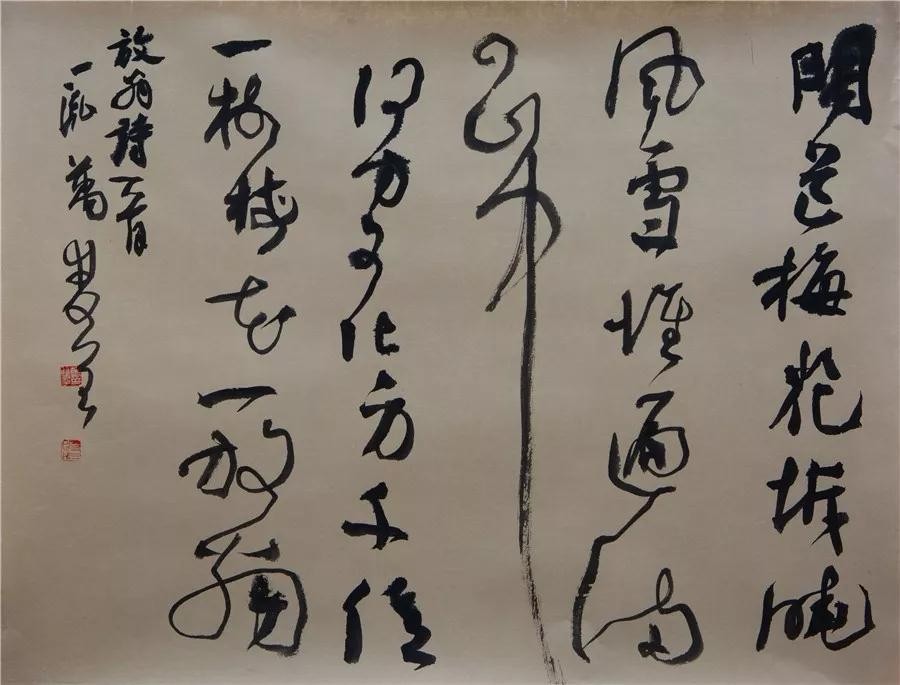 聞道梅花坼曉
風雪堆遍滿
四山中
何方可化身千億
一樹梅花一放翁
放翁詩一首